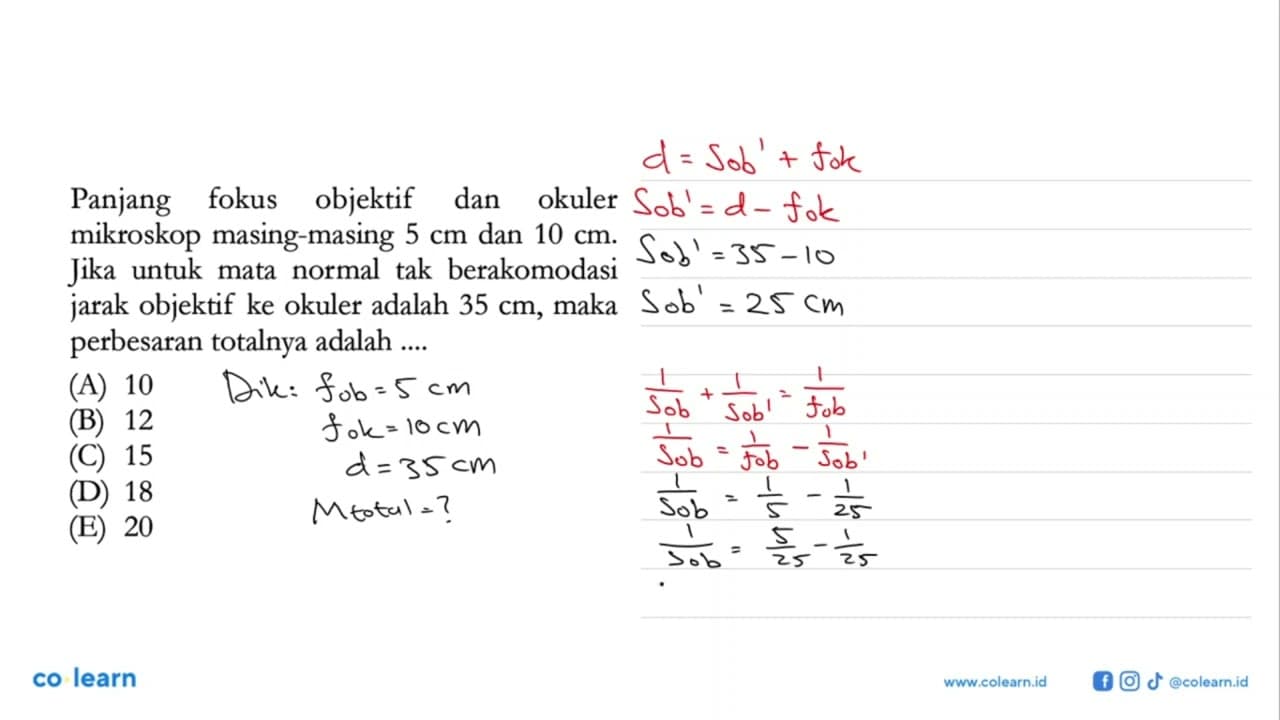 Panjang fokus objektif dan okuler
mikroskop masing-masing 5 cm dan 10 cm.
Jika untuk mata normal tak berakomodasi
jarak objektif ke okuler adalah 35 cm, maka
perbesaran totalnya adalah ....
(A) 10
(B) 12
(C) 15
(D) 18
(E) 20
Dik: fob = 5 cm
fok = 10 cm
d = 35 cm
Mtotal = ?
d = Sob' + fok
Sob' = d - fok
Sob' = 35 - 10
Sob' = 25 cm
1/Sob + 1/Sob' = 1/fob
1/Sob = 1/fob - 1/Sob'
1/Sob = 1/5 - 1/25
1/Sob = 5/25 - 1/25
co learn
www.colearn.id
@colearn.id